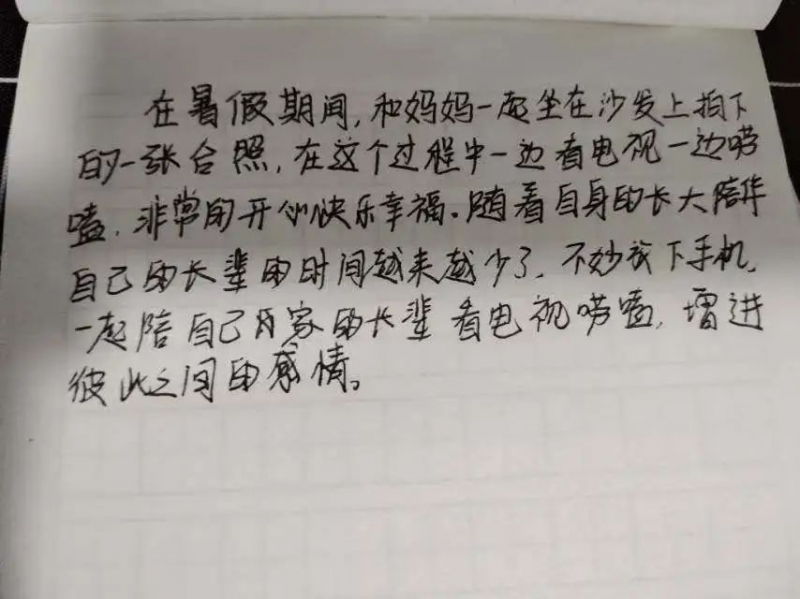 在暑假期间,和妈妈一起坐在沙发上拍下
的一张合照,在这个过程中一边看电视一边唠
嗑,非常的开心快乐幸福。随着自身的长大陪伴
自己的长辈的时间越来越少了,不妙找下手机,
一起陪自己家的长辈看电视唠嗑,增进
彼此之间的感情。